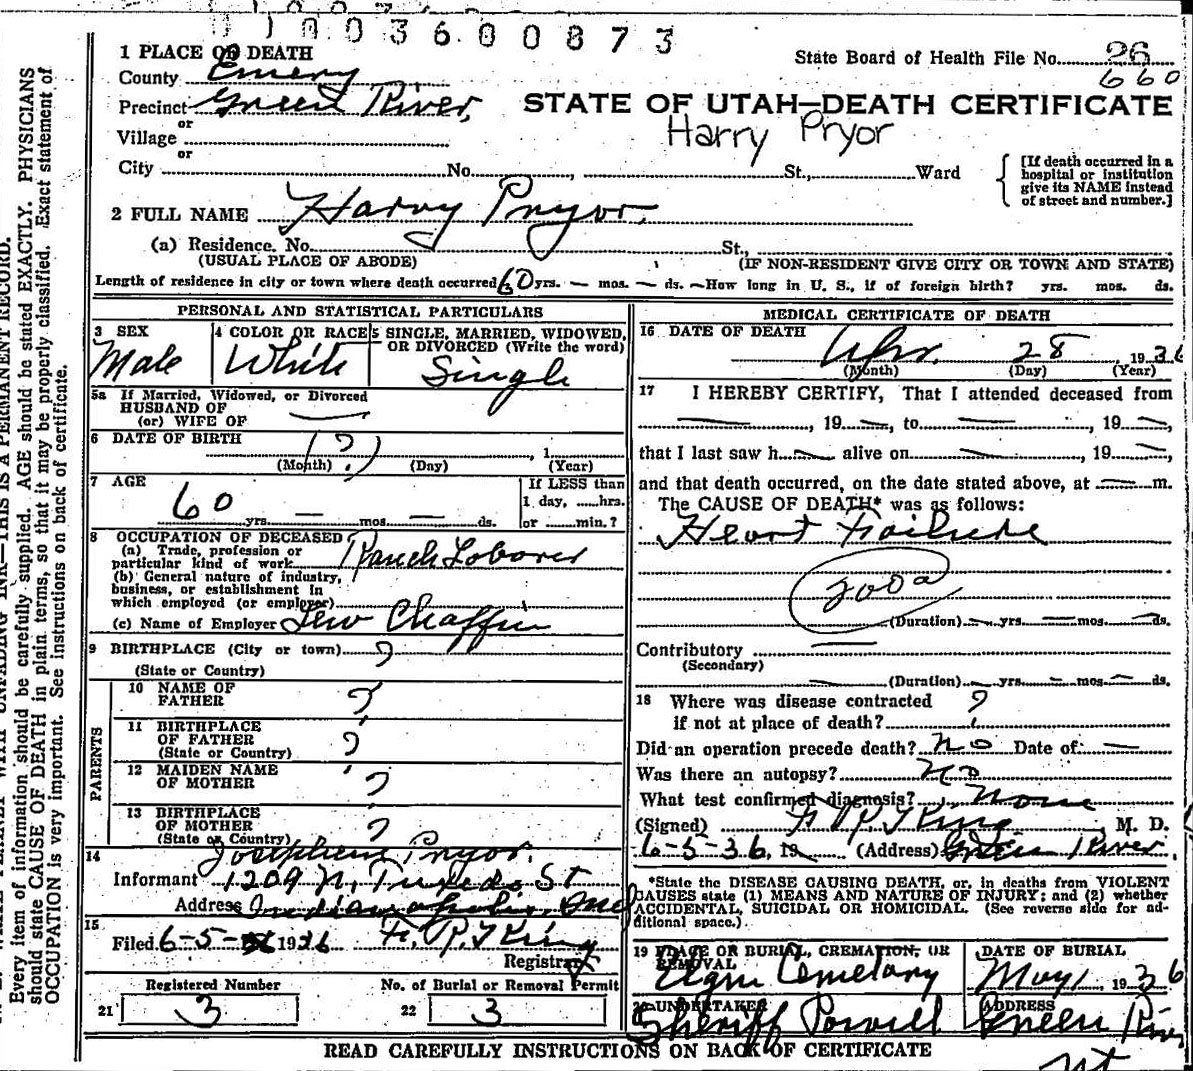 0 1 0 0 3 6 0 0 8 7 3
1 PLACE OF DEATH
State Board of Health File No. 26
County Emery
660
Precinct Green River,
STATE OF UTAH—DEATH CERTIFICATE
or
Harry Pryor
Village
or
City No. , St., Ward
[If death occurred in a hospital or institution give its NAME instead of street and number.]
2 FULL NAME Harry Pryor.
(a) Residence. No. St.,
(USUAL PLACE OF ABODE) (IF NON-RESIDENT GIVE CITY OR TOWN AND STATE)
Length of residence in city or town where death occurred 60 yrs. — mos. — ds. — How long in U. S., if of foreign birth? yrs. mos. ds.
PERSONAL AND STATISTICAL PARTICULARS
3 SEX
Male
4 COLOR OR RACE
White
5 SINGLE, MARRIED, WIDOWED,
OR DIVORCED (Write the word)
Single
5a If Married, Widowed, or Divorced
HUSBAND OF
(or) WIFE OF —
6 DATE OF BIRTH (?) , 1
(Month) (Day) (Year)
7 AGE
60 yrs. — mos. — ds.
If LESS than
1 day, hrs.
or min.?
8 OCCUPATION OF DECEASED
(a) Trade, profession or
particular kind of work Ranch Laborer
(b) General nature of industry,
business, or establishment in
which employed (or employer)
(c) Name of Employer Lew Chaffin
9 BIRTHPLACE (City or town) ?
(State or Country)
PARENTS
10 NAME OF
FATHER ?
11 BIRTHPLACE
OF FATHER ?
(State or Country)
12 MAIDEN NAME
OF MOTHER ?
13 BIRTHPLACE
OF MOTHER ?
(State or Country)
14 Josephene Pryor.
Informant 1209 N. Tuxedo St
Address Indianapolis, Ind
15
Filed 6-5- 1936 F. R. King
Registrar
Registered Number
21 3
No. of Burial or Removal Permit
22 3
MEDICAL CERTIFICATE OF DEATH
16 DATE OF DEATH
Apr. 28 1936
(Month) (Day) (Year)
17 I HEREBY CERTIFY, That I attended deceased from
—, 19 —, to —, 19 —,
that I last saw h — alive on —, 19 —,
and that death occurred, on the date stated above, at — m.
The CAUSE OF DEATH* was as follows:
Heart Failure
200a
(Duration) — yrs. — mos. — ds.
Contributory —
(Secondary)
— (Duration) — yrs. — mos. — ds.
18 Where was disease contracted
if not at place of death? ?
Did an operation precede death? no Date of —
Was there an autopsy? no
What test confirmed diagnosis? None
(Signed) F. R. King, M. D.
6-5-36, 19 (Address) Green River.
*State the DISEASE CAUSING DEATH, or, in deaths from VIOLENT
CAUSES state (1) MEANS AND NATURE OF INJURY; and (2) whether
ACCIDENTAL, SUICIDAL OR HOMICIDAL. (See reverse side for ad-
ditional space.)
19 PLACE OR BURIAL, CREMATION, OR
REMOVAL
Elgin Cemetary
DATE OF BURIAL
May 1, 1936
20 UNDERTAKER
Sheriff Powell
ADDRESS
Green River
Ut
READ CAREFULLY INSTRUCTIONS ON BACK OF CERTIFICATE
THIS IS A PERMANENT RECORD.
Every item of information should be carefully supplied. AGE should be stated EXACTLY. PHYSICIANS
should state CAUSE OF DEATH in plain terms, so that it may be properly classified. Exact statement of
OCCUPATION is very important. See instructions on back of certificate.